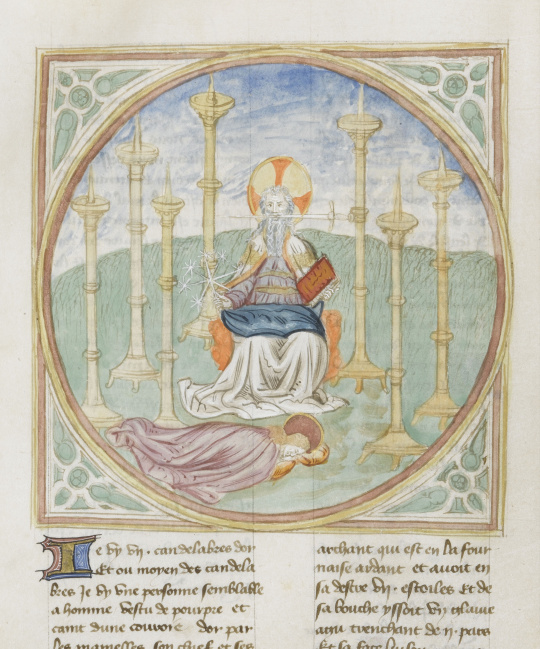 Je vy vij. candelabres dor
Et ou moyen des candela
bres Je vy vne personne semblable
a homme vestu de pourpre et
caint dune couroye dor par
les mamelles son chief et ses
archant qui est en la four
naise ardant et auoit en
sa destre vij. estoiles et de
sa bouche yssoit vng glaiue
agu trenchant de ij. pars
Et sa face